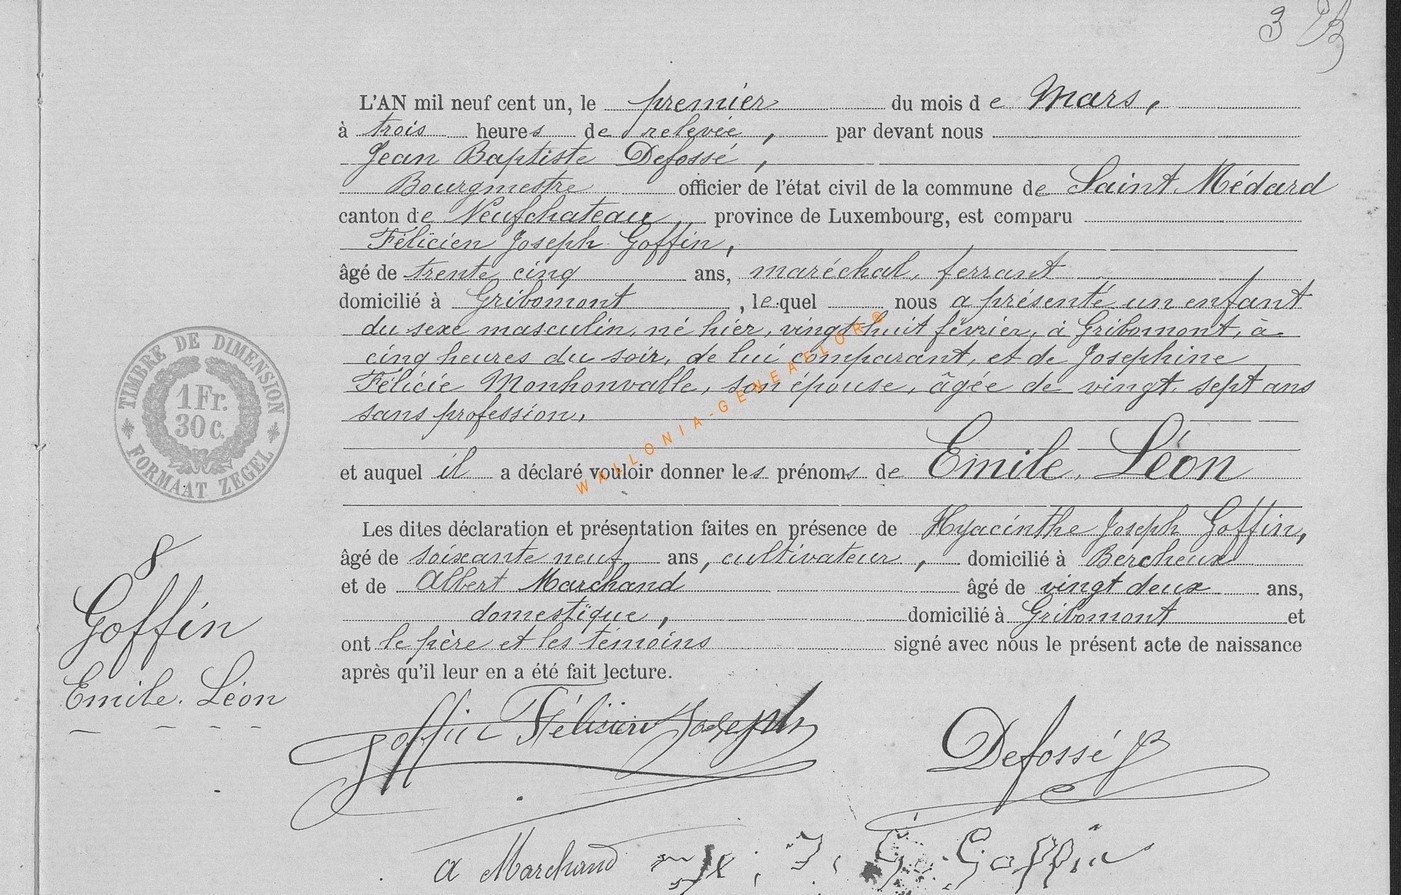 3
L'AN mil neuf cent un, le premier du mois de Mars,
à trois heures de relevée, par devant nous
Jean Baptiste Defossé,
Bourgmestre officier de l'état civil de la commune de Saint Médard
canton de Neufchateau province de Luxembourg, est comparu
Félicien Joseph Goffin,
âgé de trente cinq ans, maréchal, ferrant
domicilié à Gribomont, lequel nous a présenté un enfant
du sexe masculin, né hier, vingt huit février, à Gribomont, à
cinq heures du soir, de lui comparant, et de Josephine
Félicie Monhonvalle, son épouse, âgée de vingt sept ans
sans profession,
WALLONIA-GENEAFLOR®
TIMBRE DE DIMENSION
1 Fr.
30 c.
FORMAAT ZEGEL
et auquel il a déclaré vouloir donner les prénoms de Emile, Léon
Les dites déclaration et présentation faites en présence de Hyacinthe Joseph Goffin,
âgé de soixante neuf ans, cultivateur, domicilié à Bercheux
et de Albert Marchand âgé de vingt deux ans,
domestique, domicilié à Gribomont et
ont le père et les témoins signé avec nous le présent acte de naissance
après qu'il leur en a été fait lecture.
8
Goffin
Emile. Léon
Goffin Félicien Joseph Defossé JB
A Marchand H. J. Goffin